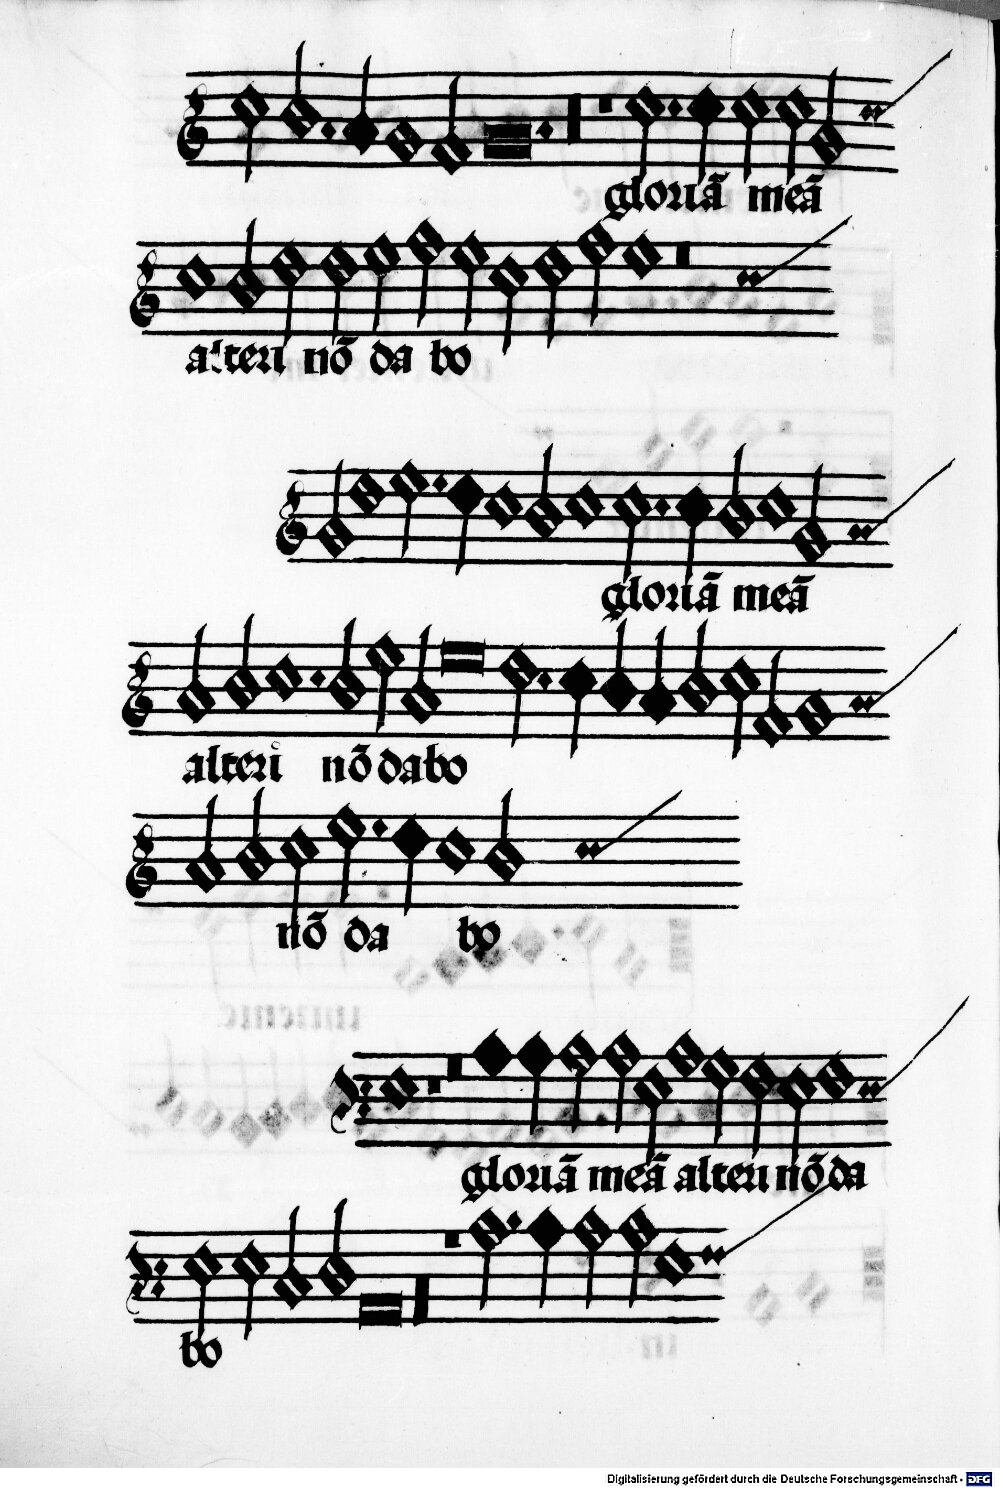 gloriā meā
alteri nō da bo
gloriā meā
alteri nō dabo
nō da bo
gloriā meā alteri nō da
bo
Digitalisierung gefördert durch die Deutsche Forschungsgemeinschaft - DFG